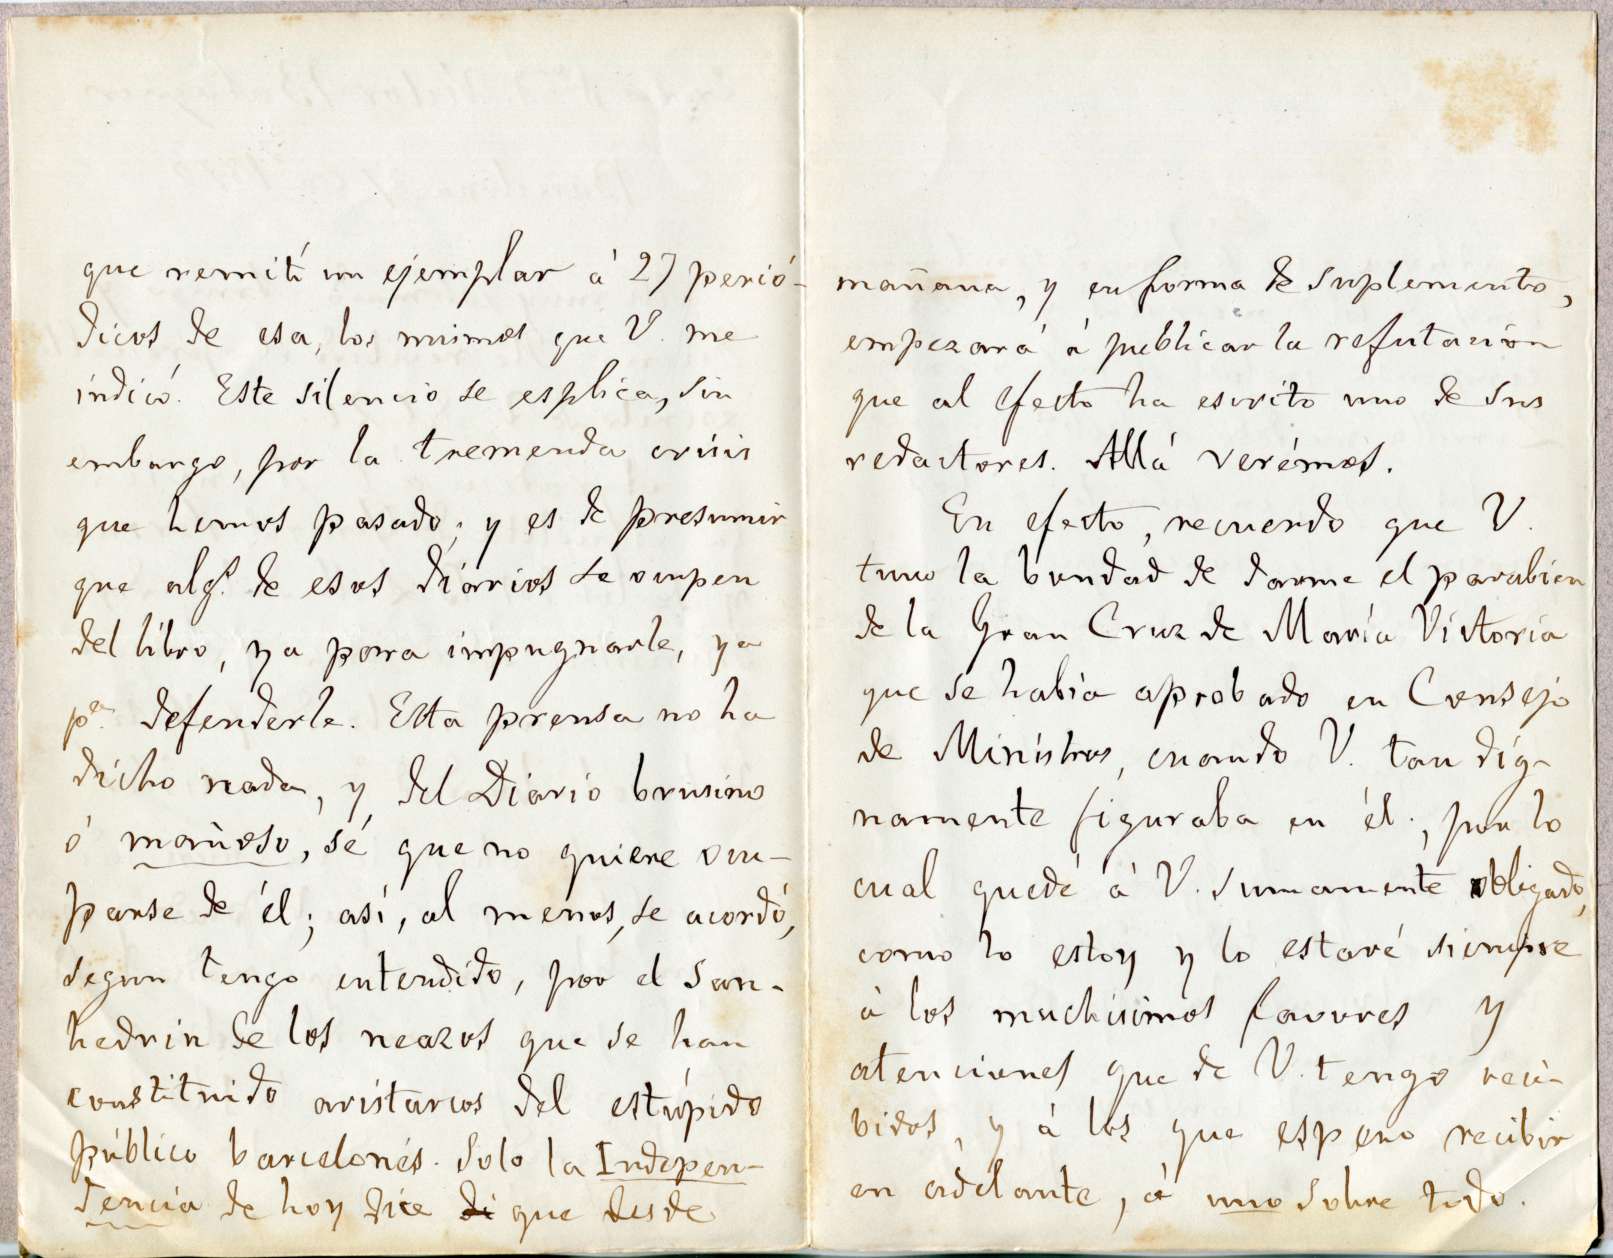 que remití un ejemplar á 27 perió-
dicos de esa, los mismos que V. me
indicó. Este silencio se esplica, sin
embargo, por la tremenda crísis
que hemos pasado; y es de presumir
que algs. de esos diários se ocupen
del libro, ya para impugnarle, ya
pa. defenderle. Esta prensa no ha
dicho nada, y del Diario brusino
ó mañoso, sé que no quiere ocu-
parse de él; así, al menos, se acordó,
segun tengo entendido, por el San-
hedrin de los neazos que se han
constituido aristarcos del estúpido
público barcelonés. Solo la Indepen-
dencia de hoy dice di que desde
mañana, y en forma de suplemento,
empezará á publicar la refutación
que al efecto ha escrito uno de sus
redactores. Allá verémos.
En efecto, recuerdo que V.
tuvo la bondad de darme el parabien
de la Gran Cruz de María Victoria
que se había aprobado en Consejo
de Ministros, cuando V. tan dig-
namente figuraba en él; por lo
cual quedé á V. sumamente obligado,
como lo estoy y lo estaré siempre
á los muchísimos favores y
atenciones que de V. tengo reci-
bidos, y á los que espero recibir
en adelante, á uno sobre todo.